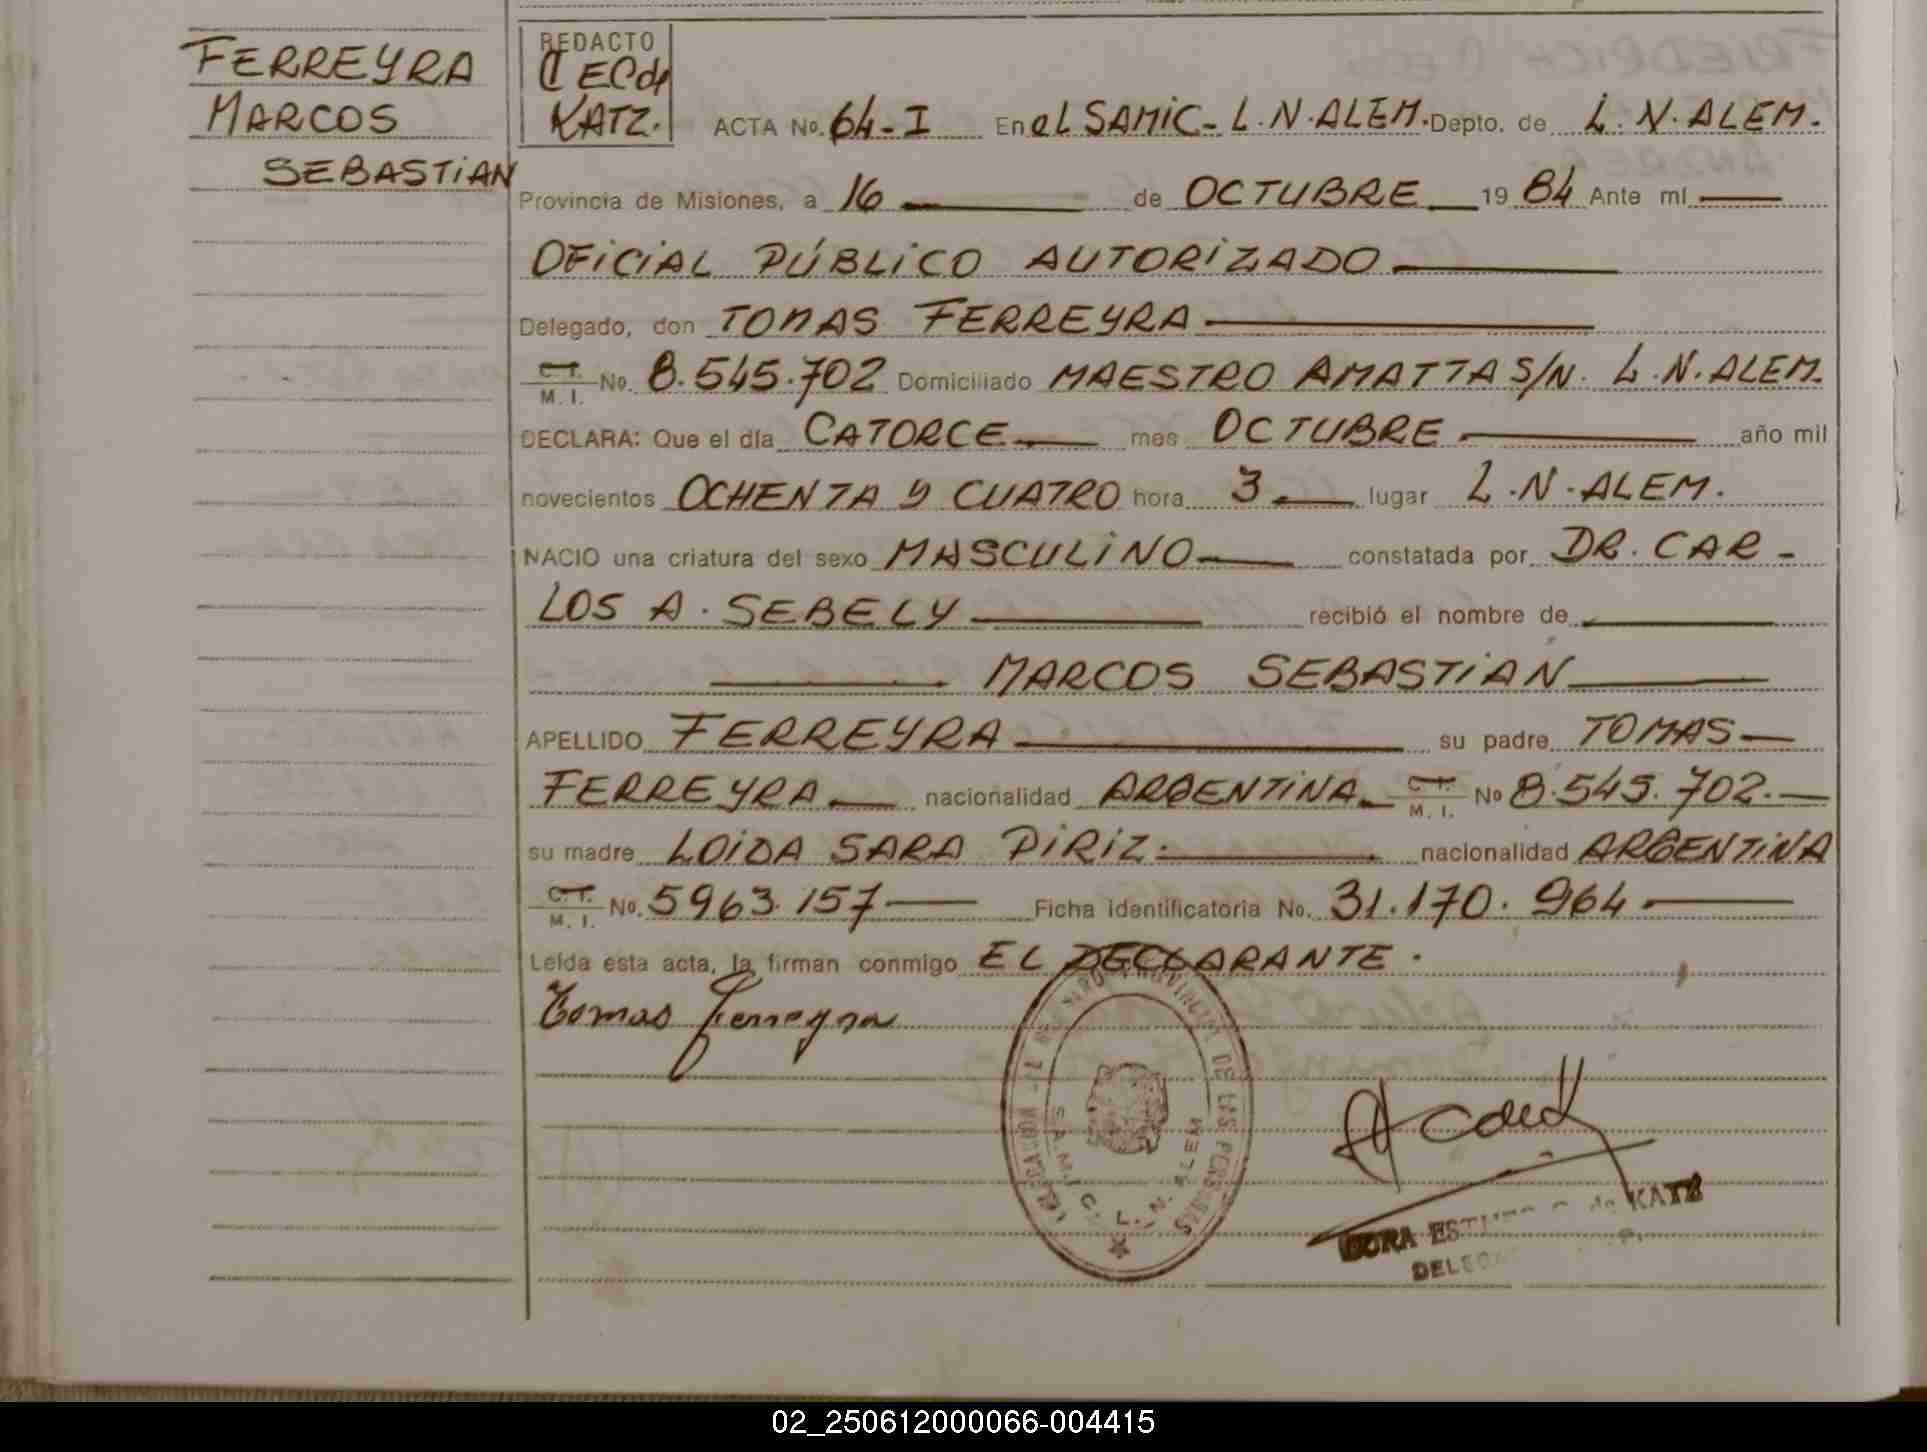 FERREYRA
MARCOS
SEBASTIAN
REDACTO
KATZ.
ACTA No. 64-I En el SAMIC - L.N.ALEM. Depto. de L.N.ALEM.
Provincia de Misiones, a 16 de OCTUBRE 19 84 Ante mí
OFICIAL PÚBLICO AUTORIZADO
Delegado, don TOMAS FERREYRA
C.I. M.I. No. 8.545.702 Domiciliado MAESTRO AMATTA S/N. L.N.ALEM.
DECLARA: Que el día CATORCE mes OCTUBRE año mil
novecientos OCHENTA Y CUATRO hora 3 lugar L.N.ALEM.
NACIO una criatura del sexo MASCULINO constatada por DR. CAR-
LOS A. SEBELY recibió el nombre de
MARCOS SEBASTIAN
APELLIDO FERREYRA su padre TOMAS
FERREYRA nacionalidad ARGENTINA C.I. M.I. No 8.545.702.
su madre LOIDA SARA PIRIZ. nacionalidad ARGENTINA
C.I. M.I. No. 5963.157 Ficha identificatoria No. 31.170.964
Leída esta acta, la firman conmigo EL DECLARANTE.
Tomas Ferreyra
PROVINCIAL DE LAS PERSONAS
S.A.M.I.C. L.N. ALEM
de KATZ
02_250612000066-004415